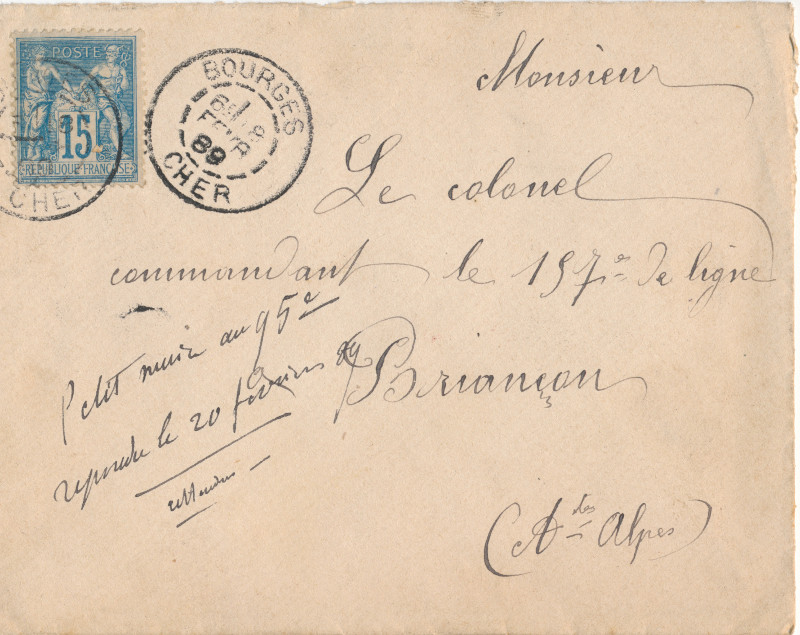 POSTE
15
REPUBLIQUE FRANÇAISE
CHER
BOURGES
FEVR
89
CHER
Monsieur
Le colonel
commandant le 157e de ligne
Briançon
(Htes Alpes)
Petit au 95e
le 20 février 89